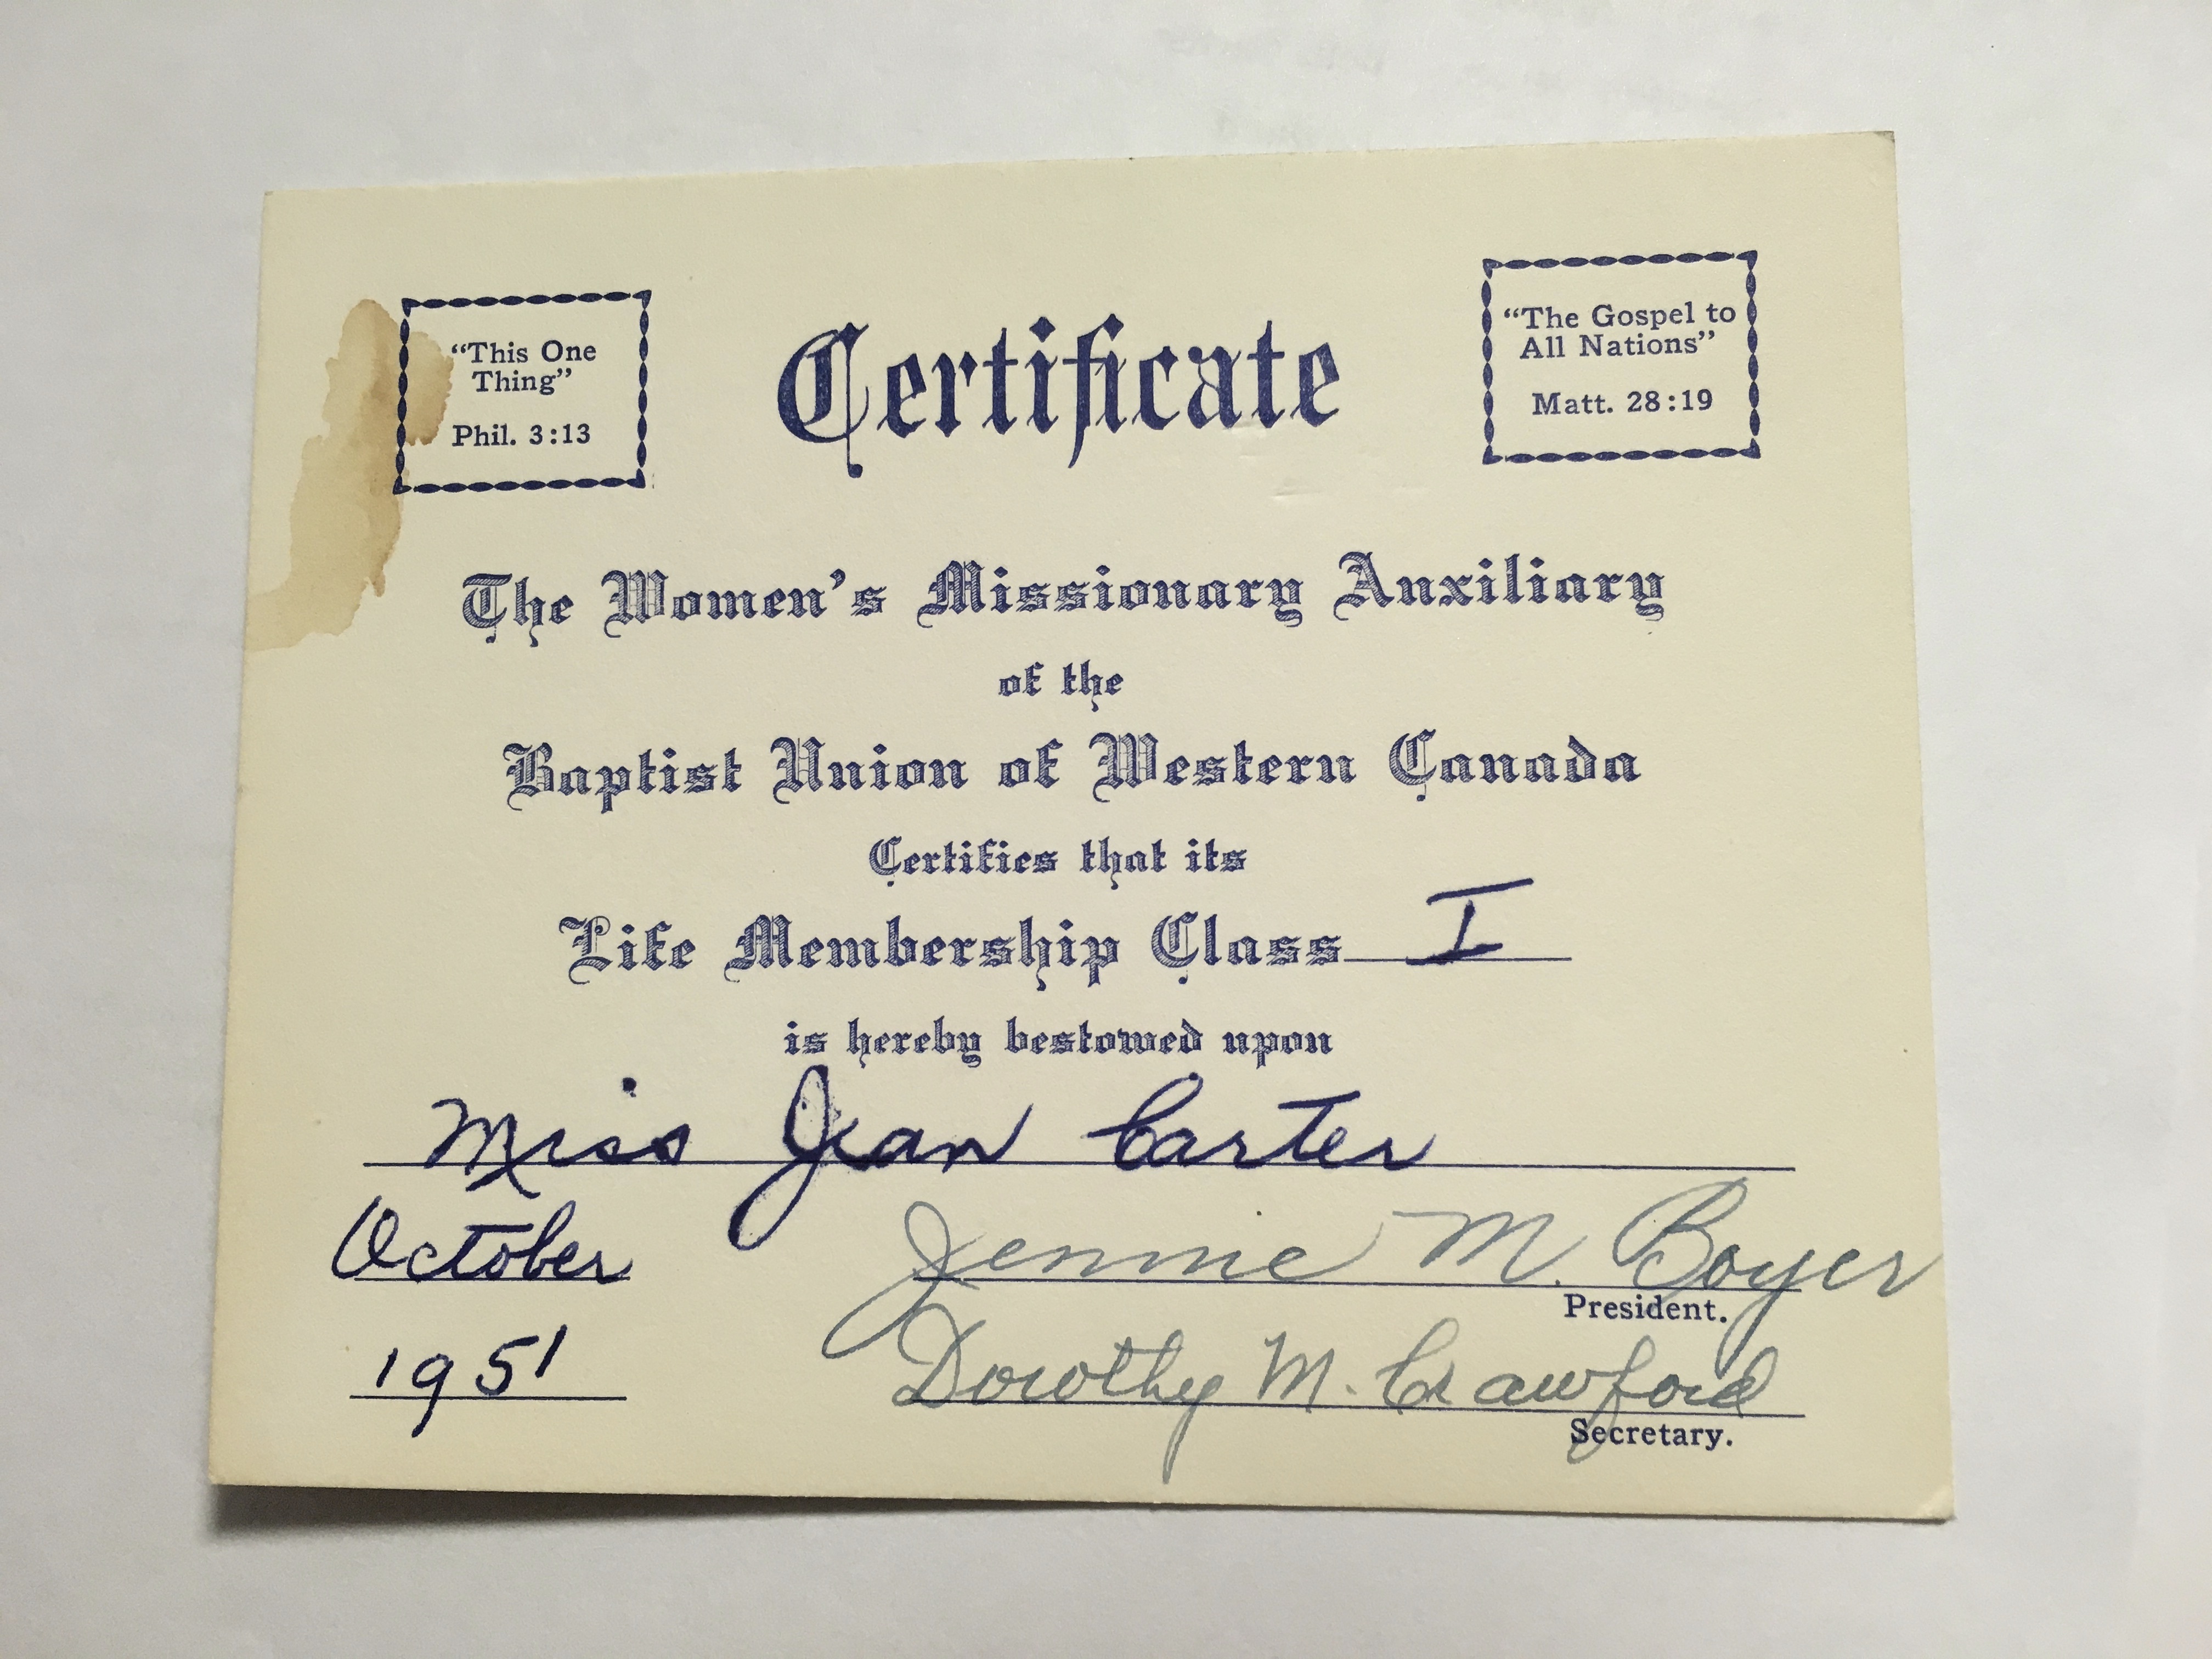 "This One
Thing"
Phil. 3:13
Certificate
"The Gospel to
All Nations"
Matt. 28:19
The Women's Missionary Auxiliary
of the
Baptist Union of Western Canada
Certifies that its
Life Membership Class I
is hereby bestowed upon
Miss Jean Carter
October
1951
Jennie M. Boyer
President.
Dorothy M. Crawford
Secretary.